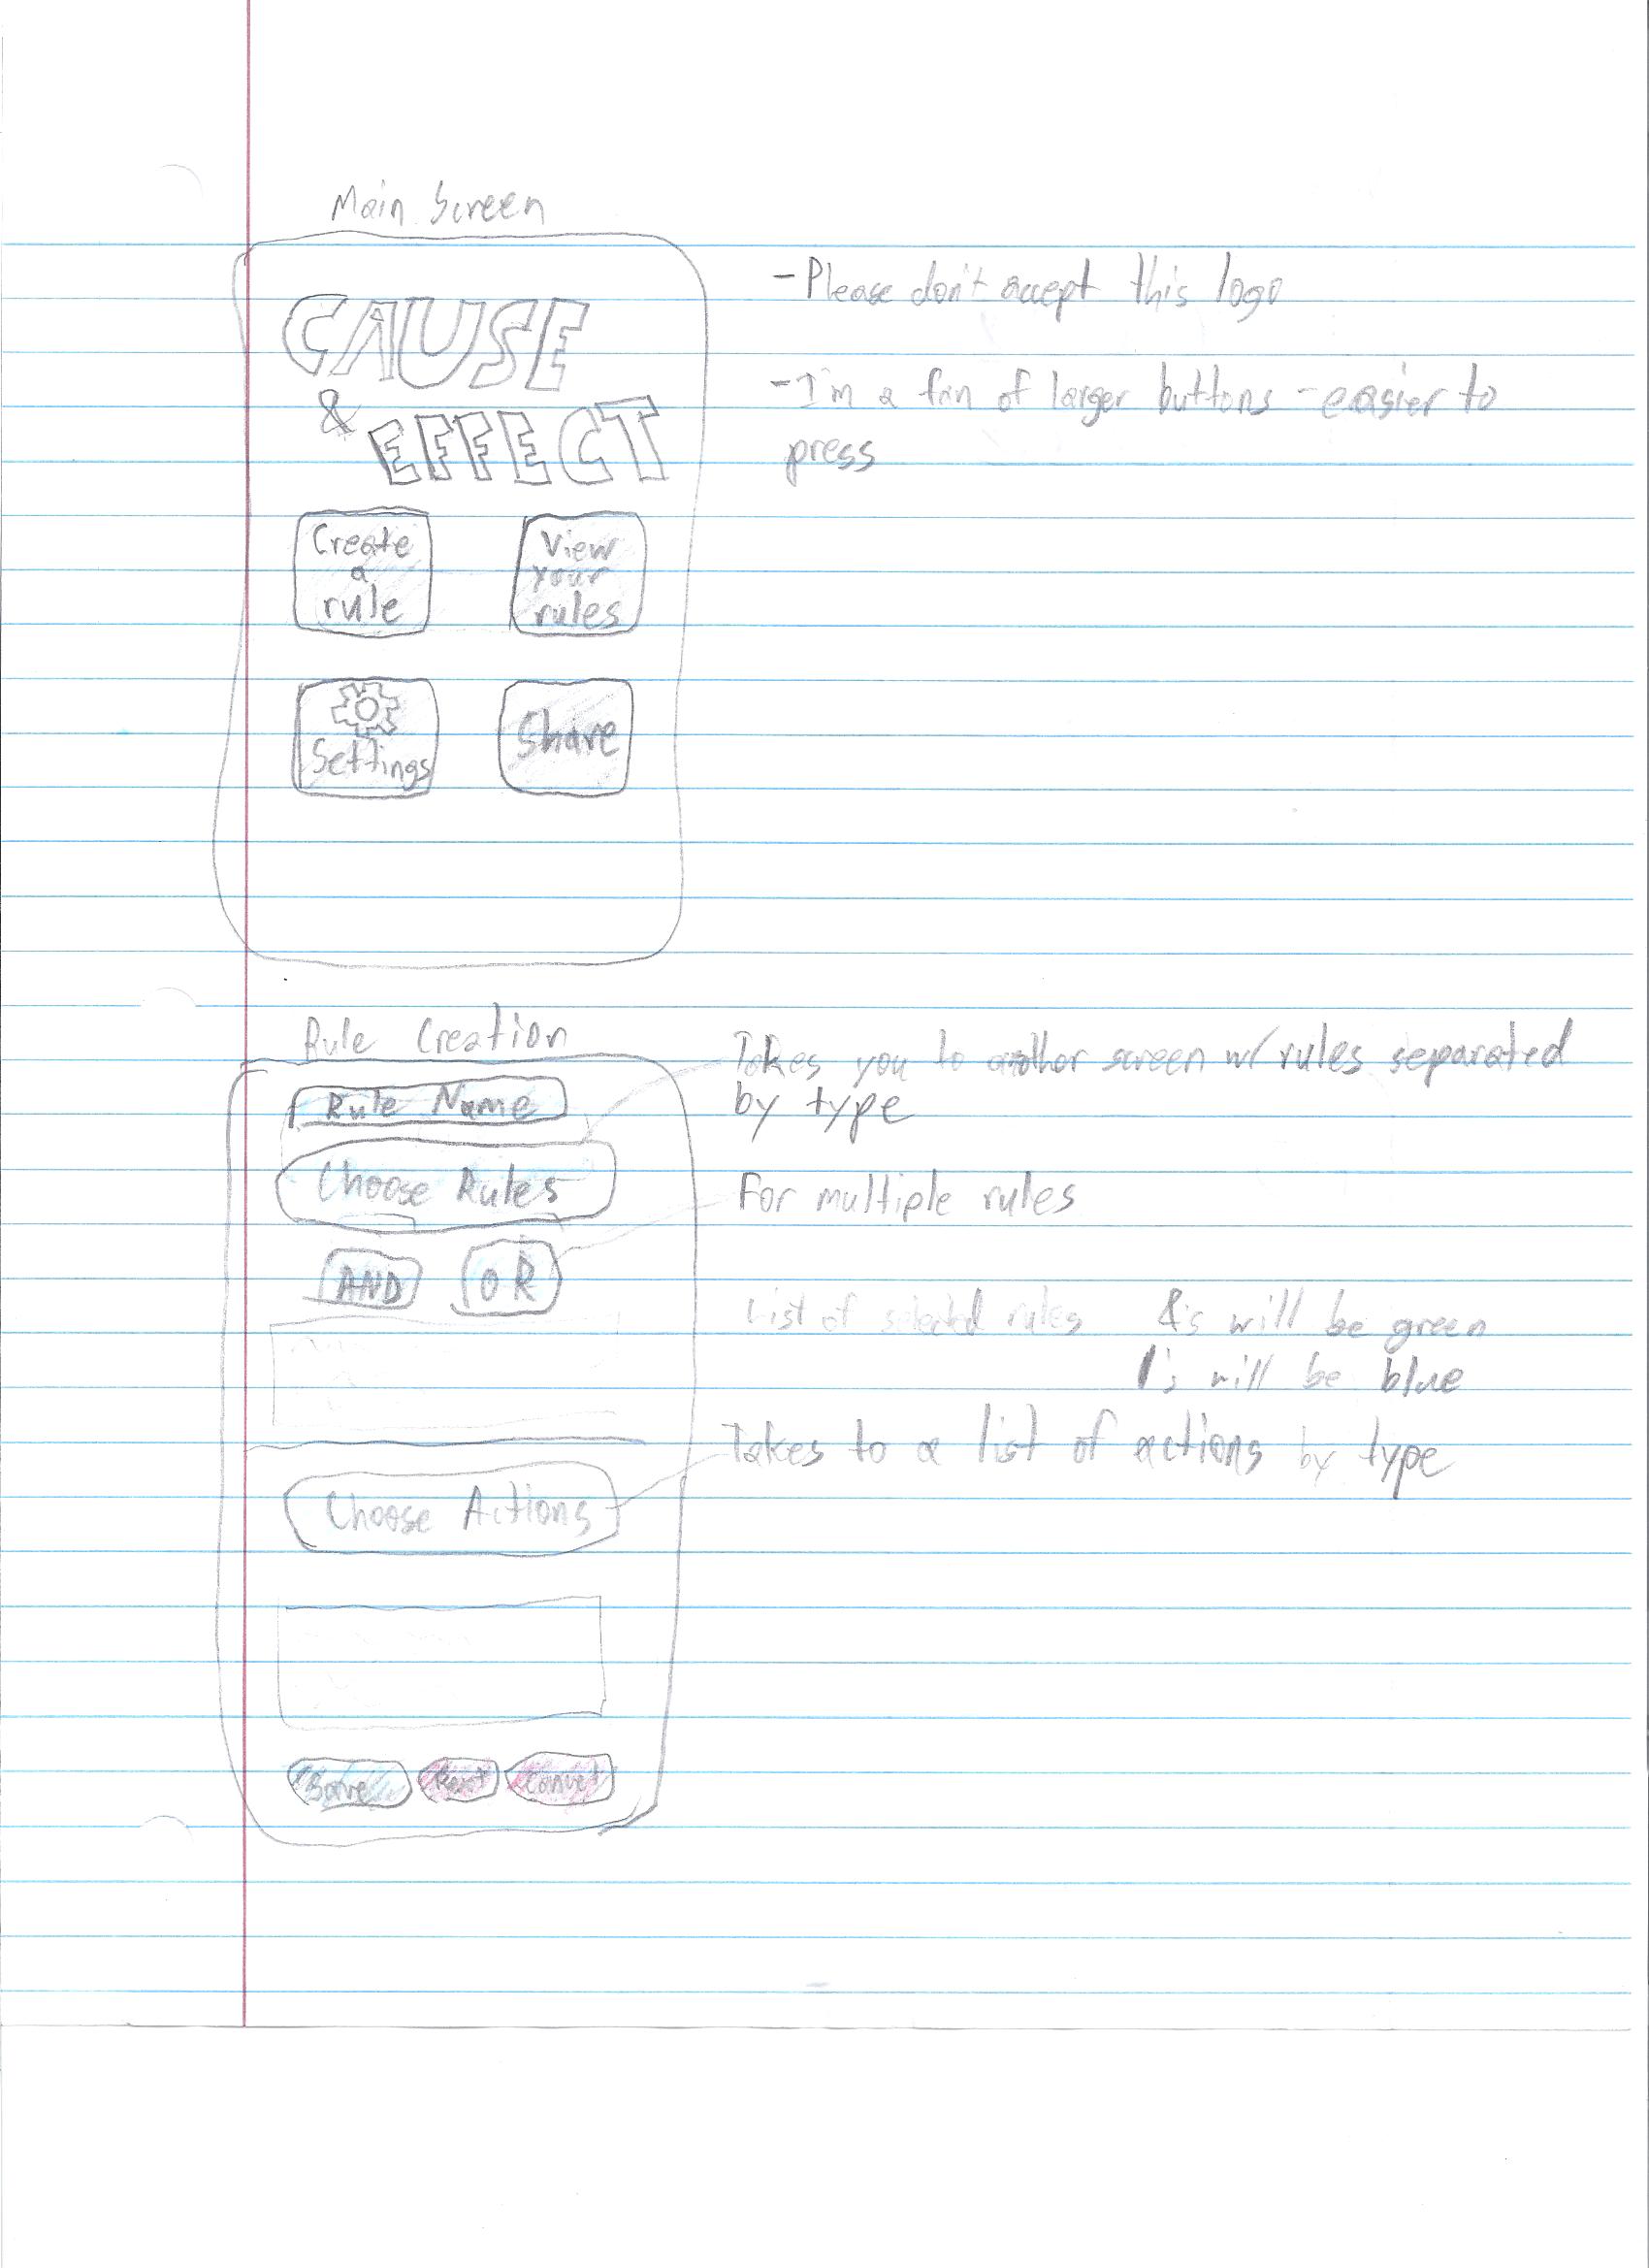 Main Screen
CAUSE
& EFFECT
Create
a
rule
View
your
rules
Settings
Share
-Please don't accept this logo
-I'm a fan of larger buttons -easier to
press
Rule Creation
Rule Name
Choose Rules
AND OR
Choose Actions
Save Reset Cancel
Takes you to another screen w/ rules separated
by type
For multiple rules
List of selected rules &'s will be green
|'s will be blue
Takes to a list of actions by type